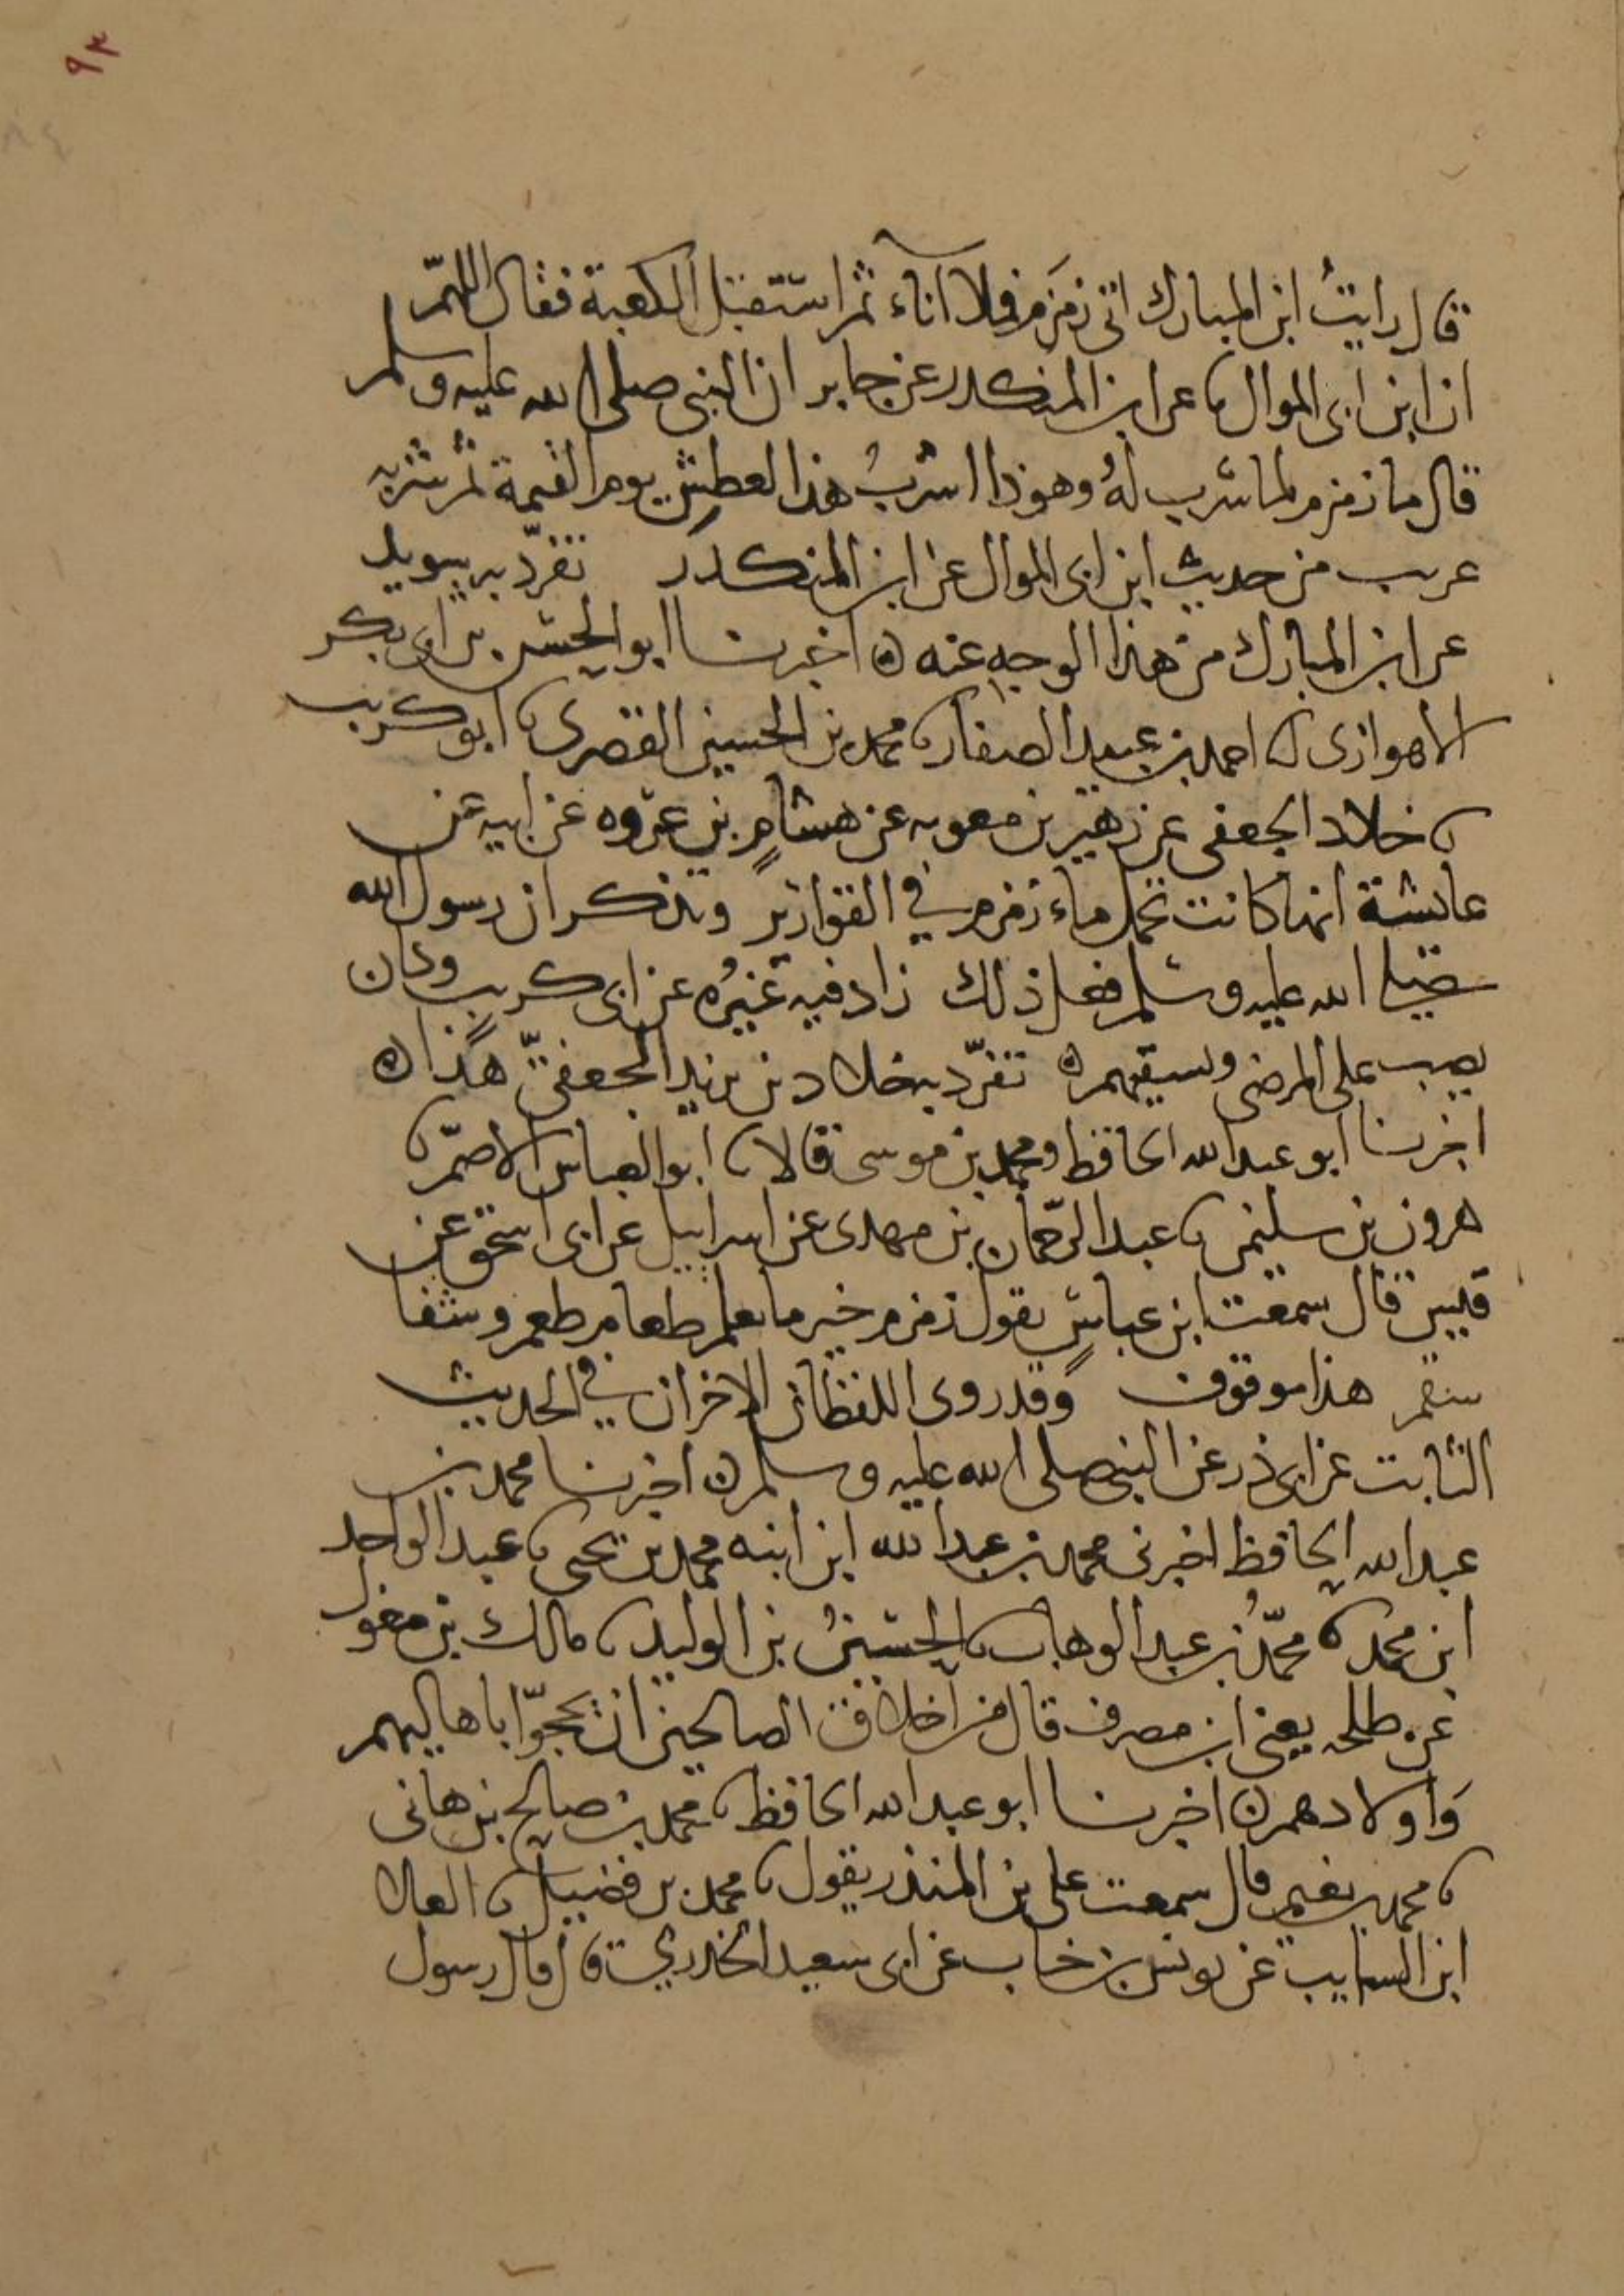 ٩٣
٨٤
قال رايتُ ابن المبارك اتى زمزم فملا اناء ثم استقبل الكعبة فقال اللهمّ
ان ابن ابى الموال نا عن ابن المنكدر عن جابر ان النبى صلى الله عليه وسلم
قال ما زمزم لما شرب لهُ وهوذا اشربُ هذا لعطش يوم القيمة ثم شربه
غريب من حديث ابن ابى الموال عن ابن المنكدر تفرّد به سويد
عن ابن المبارك من هذا الوجه عنه ه اخبرنا ابو الحسن بن ابى بكر
الاهوازى نا احمد بن عبيد الصفار نا محمد بن الحسين القصرى نا ابو كريب
نا خلاد الجعفى عن زهير بن معويه عن هشامٍ بن عروه عن ابيه عن
عائشة انها كانت تحمل ماء زمزم في القوارير وتذكر ان رسول الله
صلى الله عليه وسلم فعل ذلك زاد فيه غيرُه عن ابى كريب وكان
يصب على المرضى ويسقيهم ه تفرّد به خلاد بن يزيد الجعفىّ هذا ه
اخبرنا ابو عبد الله الحافظ ومحمد بن موسى قالا نا ابو العباس الاصمّ نا
هرون بن سليمن نا عبد الرحمان بن مهدى عن اسراييل عن ابى اسحق عن
قيس قال سمعت ابن عباسٍ يقول زمزم خير ما يعلم طعام طعم وشفا
سقم هذا موقوف وقد روى اللفظان الاخران في الحديث
الثابت عن ابى ذر عن النبى صلى الله عليه وسلم ه اخبرنا محمد بن
عبد الله الحافظ اخبرنى محمد بن عبد الله ابن ابنه محمد بن يحيى نا عبد الواحد
ابن محمد نا محمّد بن عبد الوهاب نا الحسينُ بن الوليد نا مالك بن مغول
عن طلحه يعنى ابن مصرف قال من اخلاق الصالحين ان يحجّوا باهاليهم
وَاولادهم ه اخبرنا ابو عبد الله الحافظ نا محمد بن صالح بن هانى
نا محمد بن نعيم قال سمعت على بن المنذر يقول نا محمد بن فضيل نا العلا
ابن السايب عن يونس بن خباب عن ابى سعيد الخدري قال قال رسول